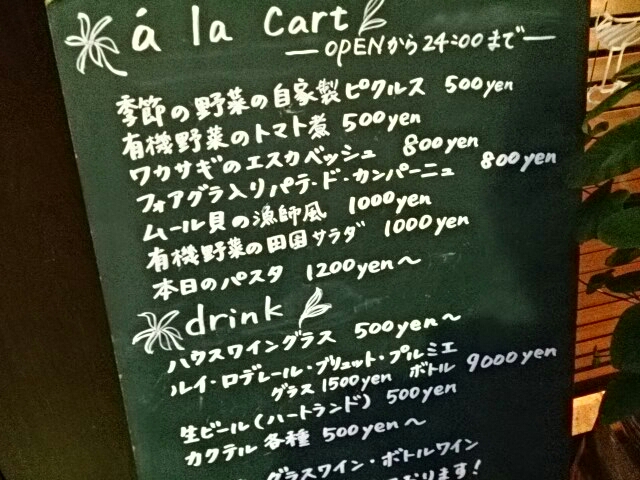 á la Cart
— OPENから24:00まで—
季節の野菜の自家製ピクルス 500yen
有機野菜のトマト煮 500yen
ワカサギのエスカベッシュ 800yen
フォアグラ入りパテ・ド・カンパーニュ 800yen
ムール貝の漁師風 1000yen
有機野菜の田園サラダ 1000yen
本日のパスタ 1200yen〜
drink
ハウスワイングラス 500yen〜
ルイ・ロデレール・ブリュット・プルミエ
グラス1500yen ボトル 9000yen
生ビール(ハートランド) 500yen
カクテル各種 500yen〜
グラスワイン・ボトルワイン
おります!